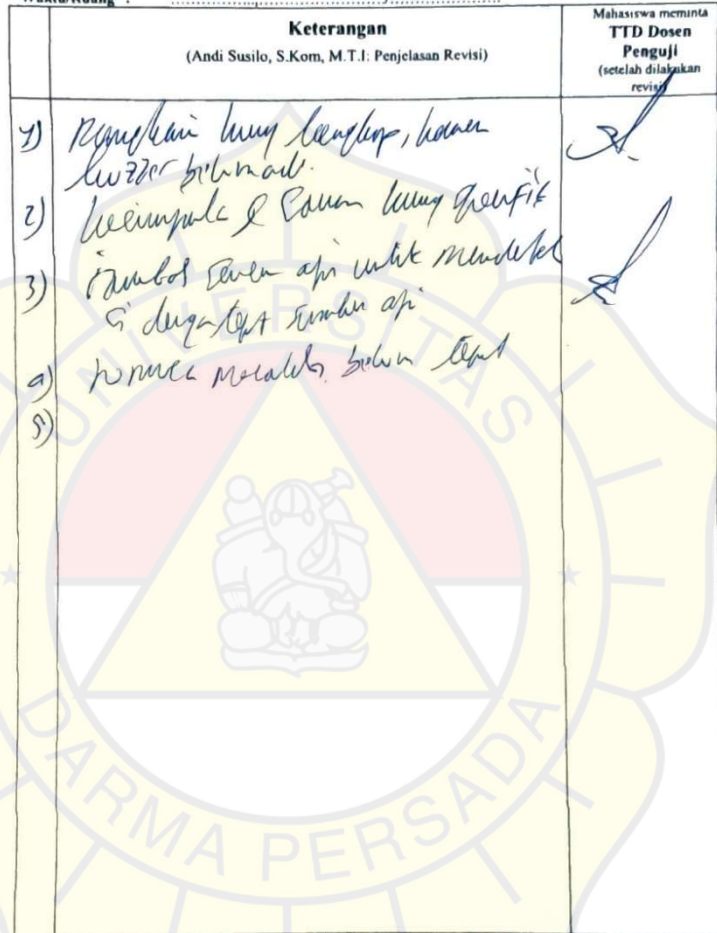 Keterangan
(Andi Susilo, S.Kom, M.T.I: Penjelasan Revisi)
Mahasiswa meminta
TTD Dosen
Penguji
(setelah dilakukan
revisi)
1) Rangkaian kurang lengkap, karena
buzzer belum ada.
2) Kesimpulan & Saran kurang spesifik
3) sensor api untuk mendeteksi
dengan tepat sumber api
4) belum tepat
5)
UNIVERSITAS
DARMA PERSADA